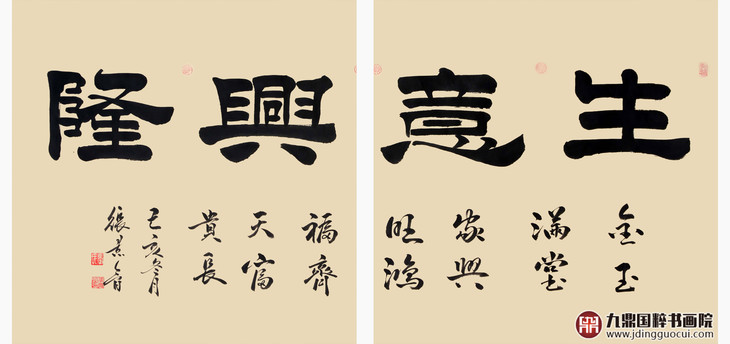 生意興隆
金玉
滿堂
家興
旺鴻
福齊
天富
貴長
己亥冬月
張景
九鼎国粹书画院
www.jdingguocui.com